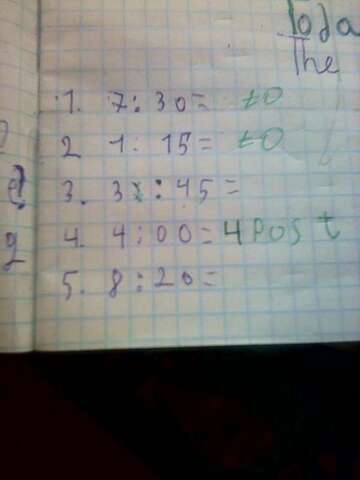 The
1. 7:30= to
2 1:15= to
3. 3:45=
4. 4:00=4 Post
5. 8:20=